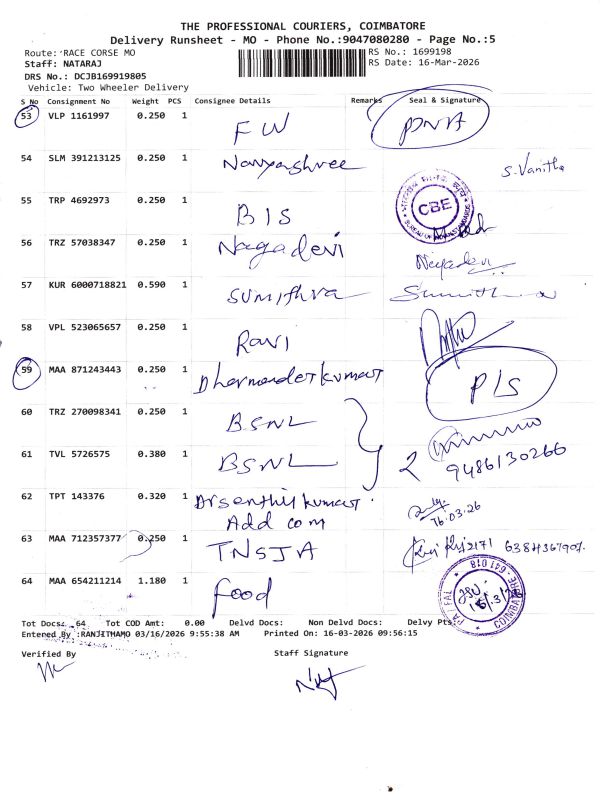 THE PROFESSIONAL COURIERS, COIMBATORE
Delivery Runsheet - MO - Phone No.:9047080280 - Page No.:5
Route: RACE CORSE MO
RS No.: 1699198
Staff: NATARAJ
RS Date: 16-Mar-2026
DRS No.: DCJB169919805
Vehicle: Two Wheeler Delivery
S No Consignment No Weight PCS Consignee Details Remarks Seal & Signature
53 VLP 1161997 0.250 1 FW DNA
54 SLM 391213125 0.250 1 Navyashree S. Vanitha
55 TRP 4692973 0.250 1 BIS CBE
56 TRZ 57038347 0.250 1 Nagadevi Nagadevi
57 KUR 6000718821 0.590 1 Sumithra Sumithra
58 VPL 523065657 0.250 1 Ravi
59 MAA 871243443 0.250 1 Dharmender kumar P/S
60 TRZ 270098341 0.250 1 BSNL
61 TVL 5726575 0.380 1 BSNL 2 9486130266
62 TPT 143376 0.320 1 Dr senthil kumar
Add com 16.03.26
63 MAA 712357377 0.250 1 TNSJA
64 MAA 654211214 1.180 1 Food
COIMBATORE - 641 018
Tot Docs: 64 Tot COD Amt: 0.00 Delvd Docs: Non Delvd Docs: Delvy Pts:
Entered By :RANJITHAMO 03/16/2026 9:55:38 AM Printed On: 16-03-2026 09:56:15
Verified By Staff Signature